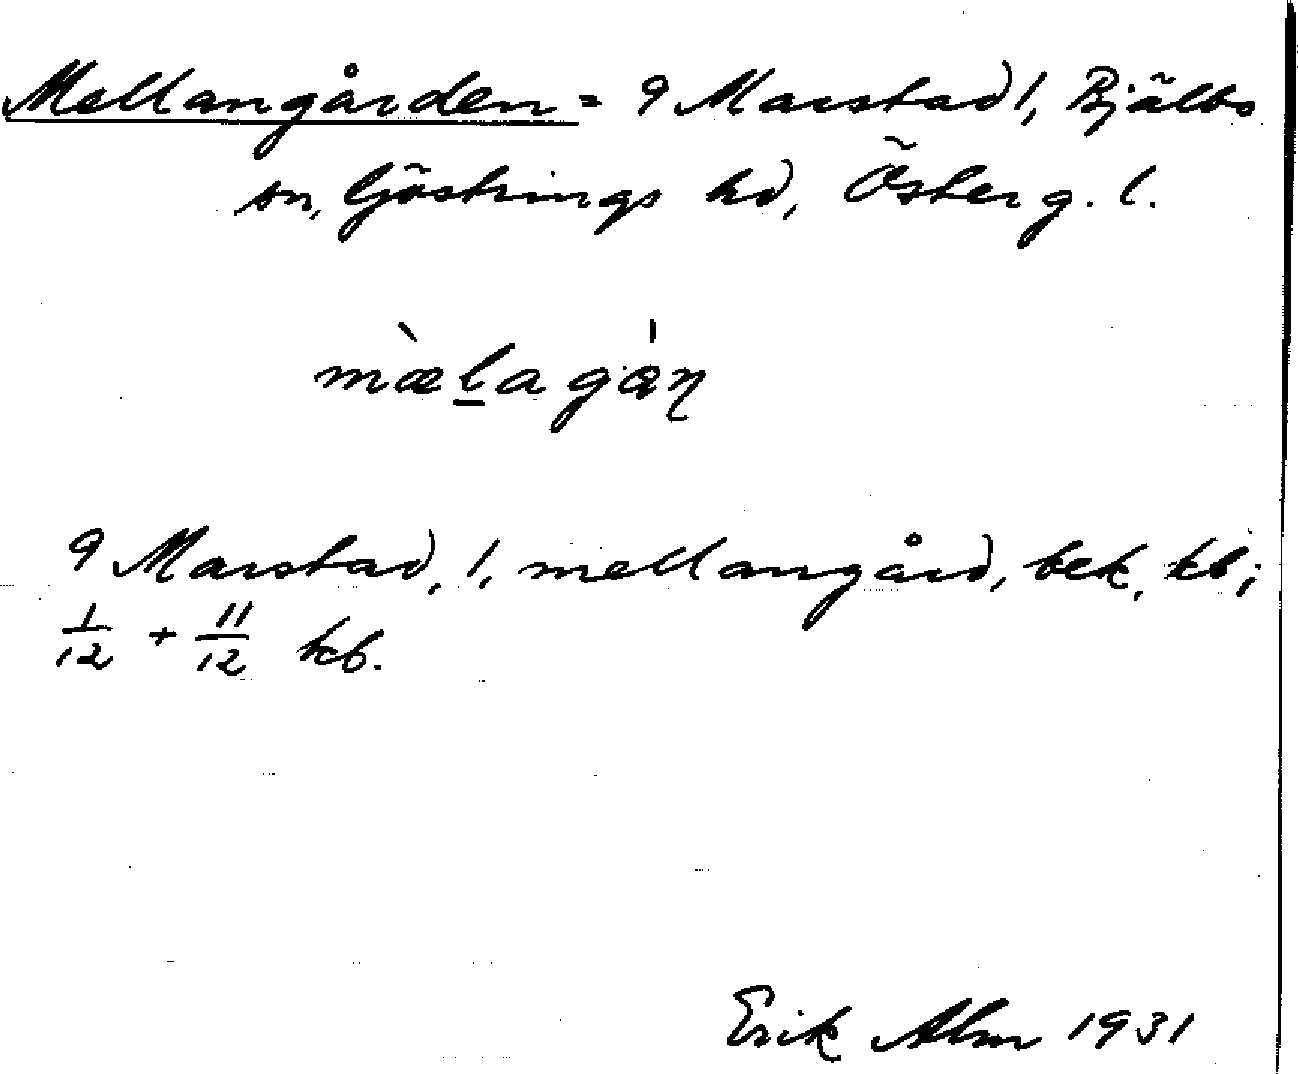 Mellangården = 9 Marstad 1, Bjälbo
sn, Göstrings hd, Österg. l.
mæ̀l̲agáɳ
9 Marstad, 1, mellangård, bek, kb;
1/12 + 11/12 kb.
Erik Alm 1931